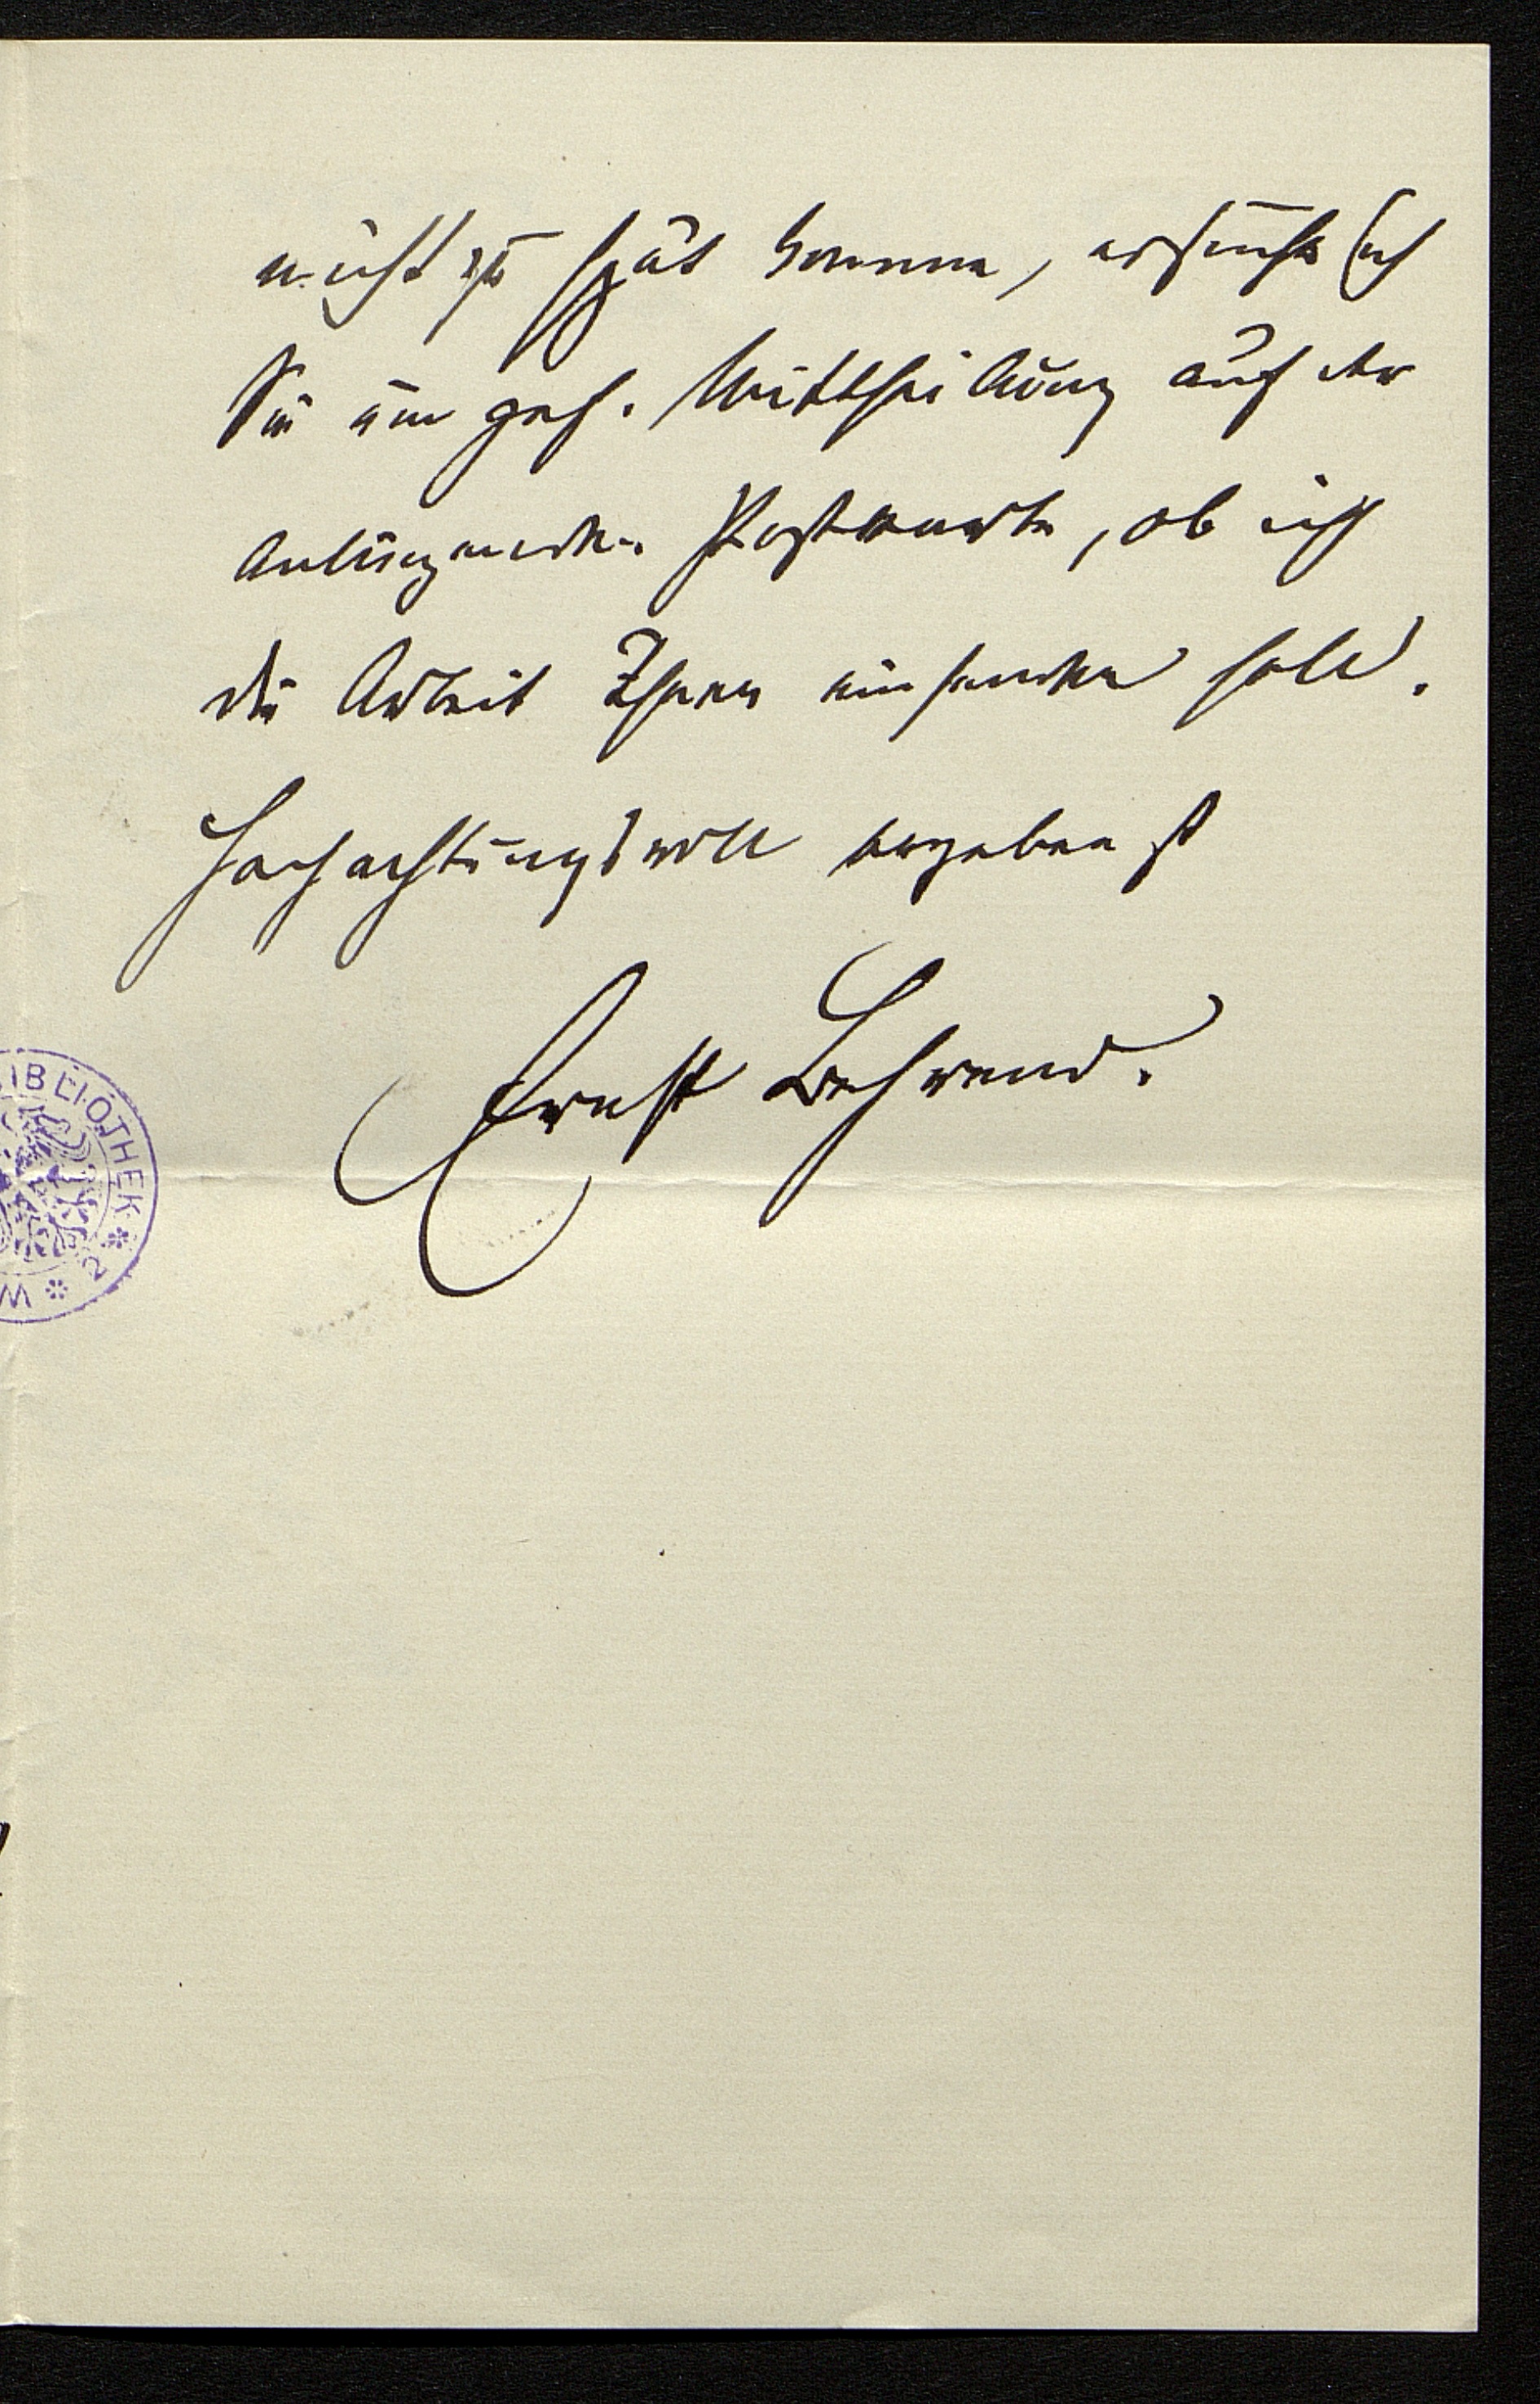 nicht zu spät komme, ersuche ich
Sie um gef. Mittheilung auf der
anliegenden Postkarte, ob ich
die Arbeit Ihnen einsenden soll.
Hochachtungsvoll ergebenst
Ernst Behrend.
IBLIOTHEK * 2 * W